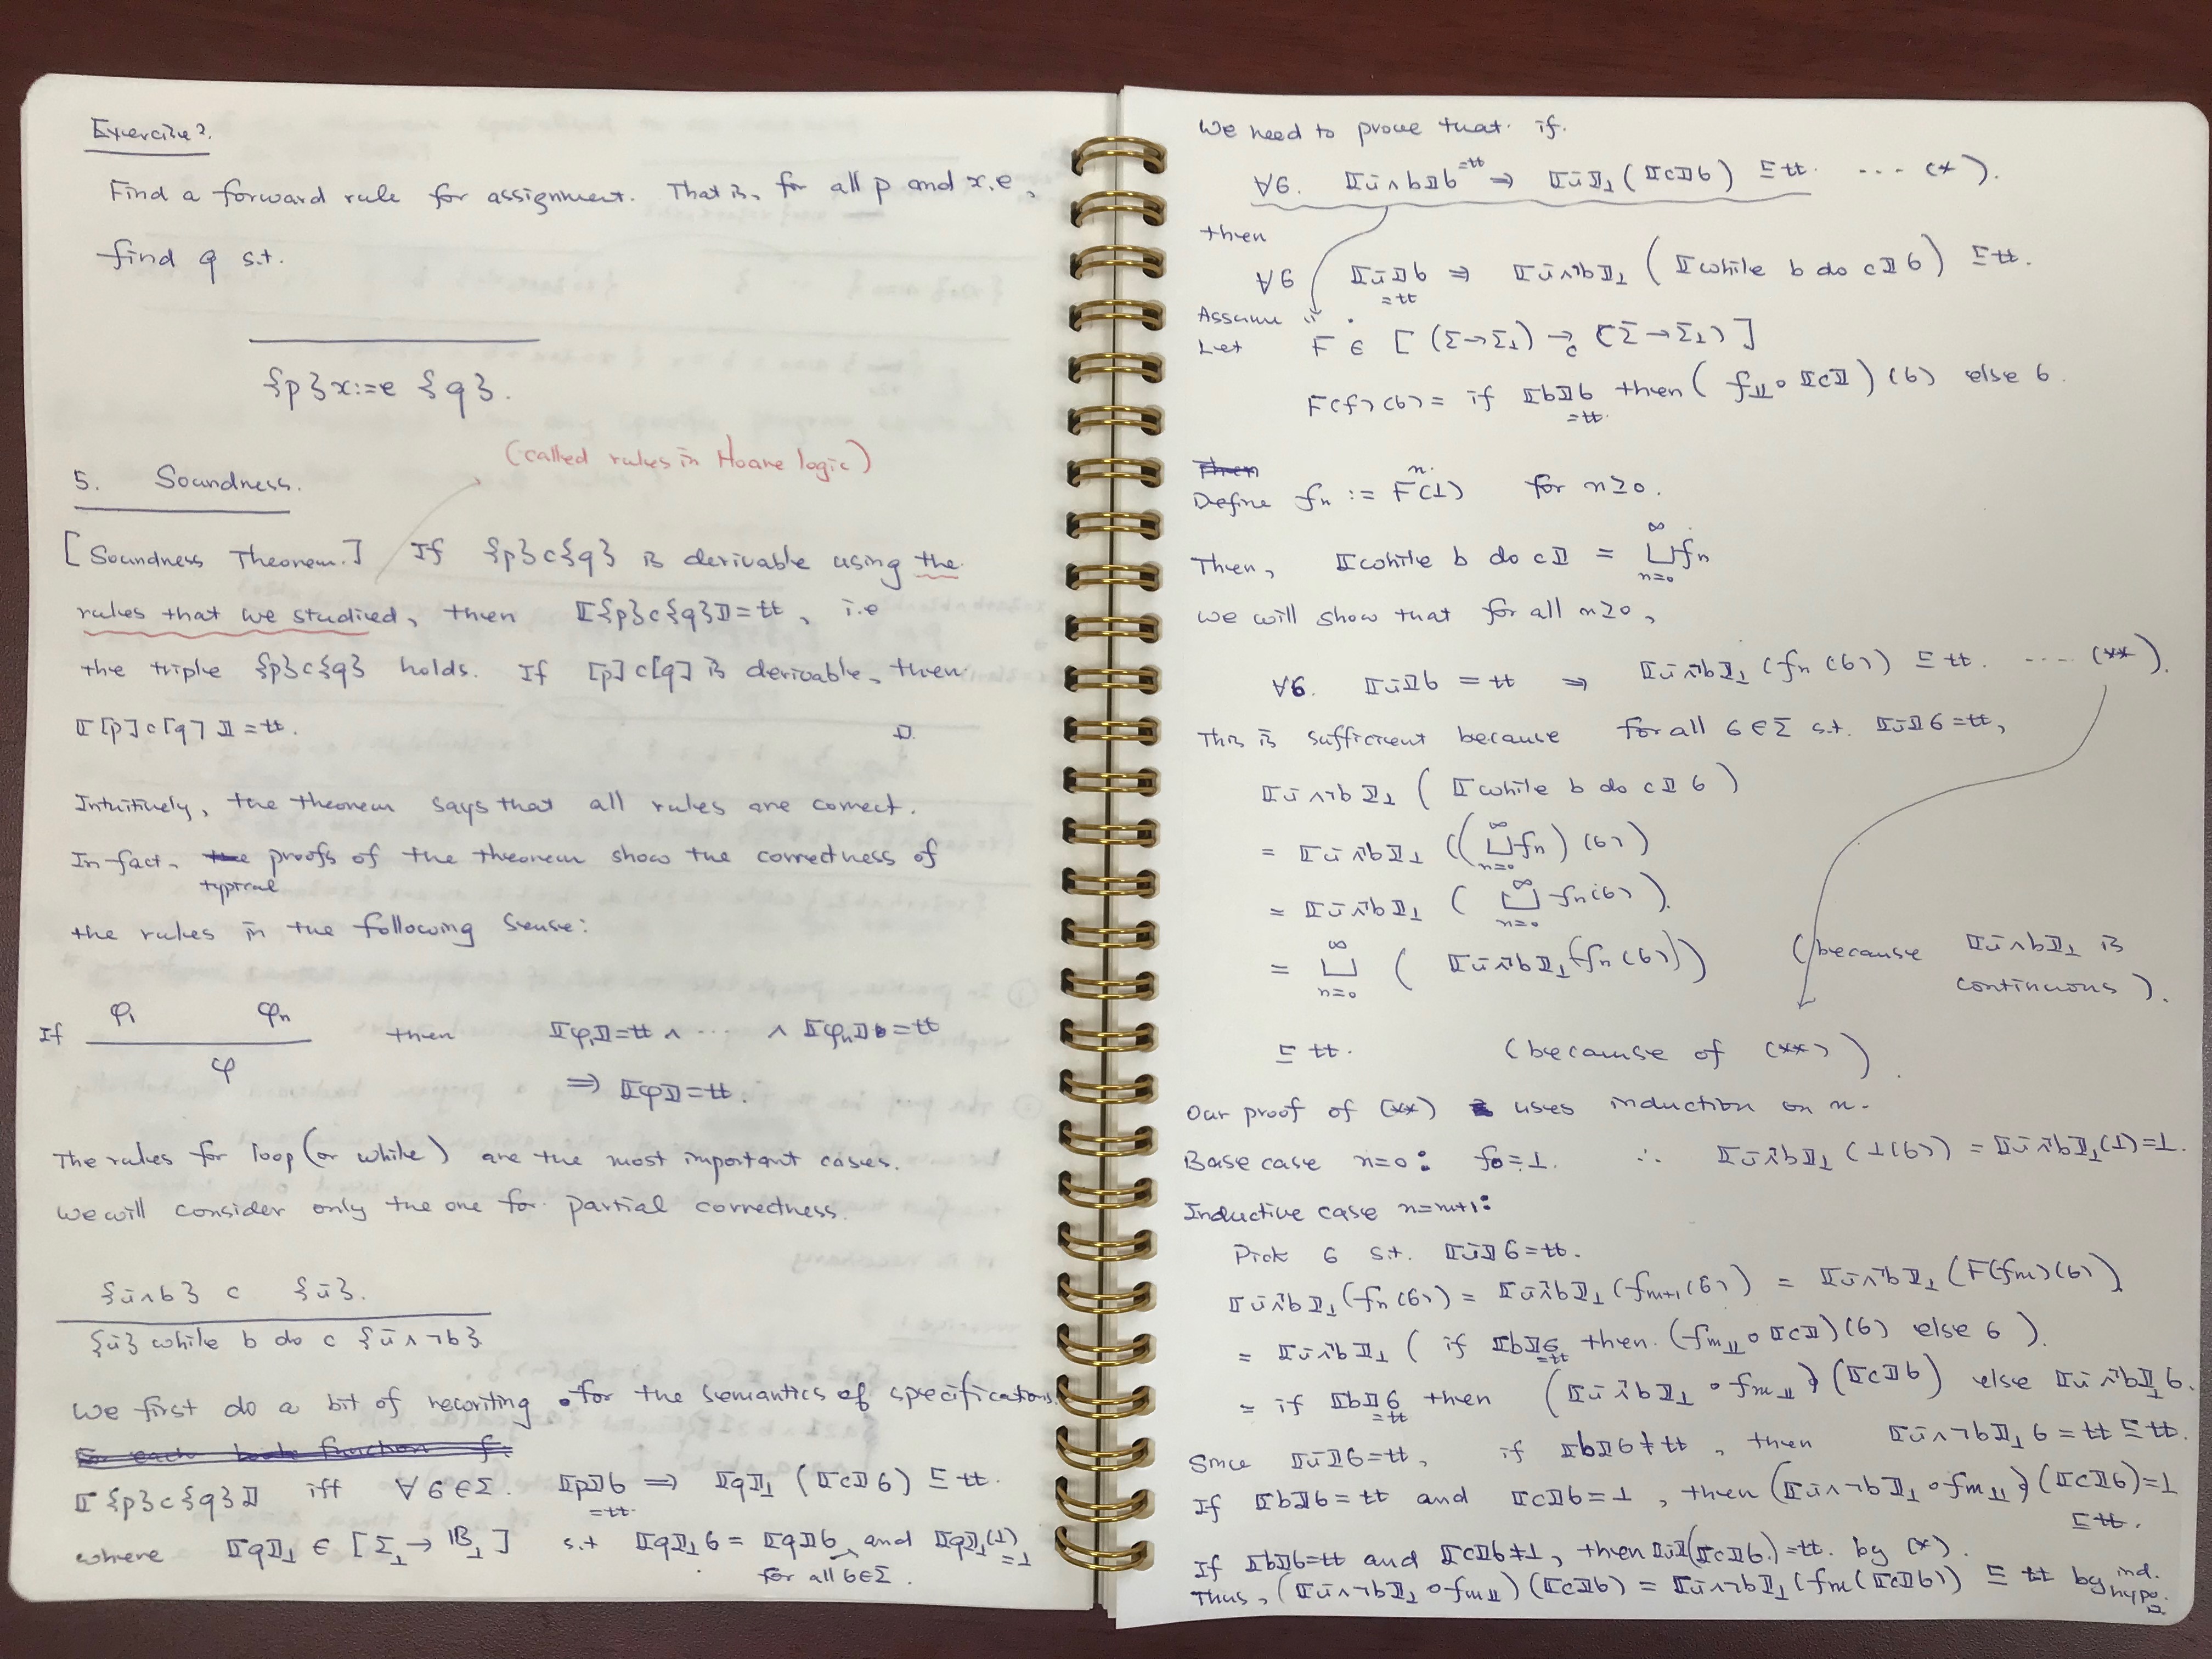 Exercise?.
Find a forward rule for assignment. That is, for all p and x, e,
find q s.t.
{p} x:=e {q}.
(called rules in Hoare logic)
5. Soundness.
[Soundness Theorem.] If {p}c{q} is derivable using the
rules that we studied, then ⟦{p}c{q}⟧=tt, i.e
the triple {p}c{q} holds. If [p]c[q] is derivable, then
⟦[p]c[q]⟧=tt. □
Intuitively, the theorem says that all rules are correct.
In fact, typical proofs of the theorem show the correctness of
the rules in the following sense:
φ₁ φₙ
If ――― then ⟦φ₁⟧=tt ∧ ... ∧ ⟦φₙ⟧=tt
φ ⟹ ⟦φ⟧=tt.
The rules for loop (or while) are the most important cases.
We will consider only the one for partial correctness.
{ū∧b} c {ū}.
{ū} while b do c {ū∧¬b}
We first do a bit of rewriting for the semantics of specifications.
⟦{p}c{q}⟧ iff ∀σ∈Σ. ⟦p⟧σ=tt ⟹ ⟦q⟧⊥(⟦c⟧σ) ⊑ tt.
where ⟦q⟧⊥ ∈ [Σ⊥→𝔹⊥] s.t ⟦q⟧⊥σ = ⟦q⟧σ, and ⟦q⟧⊥(⊥)=⊥
for all σ∈Σ.
We need to prove that if
∀σ. ⟦ū∧b⟧σ=tt ⟹ ⟦ū⟧⊥(⟦c⟧σ) ⊑ tt. ... (*).
then
∀σ ⟦ū⟧σ=tt ⟹ ⟦ū∧¬b⟧⊥(⟦while b do c⟧σ) ⊑ tt.
Assume
Let F ∈ [(Σ→Σ⊥) →c (Σ→Σ⊥)]
F(f)(σ) = if ⟦b⟧σ=tt then (f⊥⊥∘⟦c⟧)(σ) else σ.
Define fₙ := Fⁿ(⊥) for n≥0.
Then, ⟦while b do c⟧ = ⊔_{n=0}^∞ fₙ
We will show that for all n≥0,
∀σ. ⟦ū⟧σ=tt ⟹ ⟦ū∧¬b⟧⊥(fₙ(σ)) ⊑ tt. ... (**).
This is sufficient because for all σ∈Σ s.t. ⟦ū⟧σ=tt,
⟦ū∧¬b⟧⊥(⟦while b do c⟧σ)
= ⟦ū∧¬b⟧⊥((⊔_{n=0}^∞ fₙ)(σ))
= ⟦ū∧¬b⟧⊥(⊔_{n=0}^∞ fₙ(σ)).
= ⊔_{n=0}^∞ (⟦ū∧¬b⟧⊥(fₙ(σ))) (because ⟦ū∧¬b⟧⊥ is
continuous).
⊑ tt. (because of (**)).
Our proof of (**) uses induction on n.
Base case n=0: f₀=⊥. ∴ ⟦ū∧¬b⟧⊥(⊥(σ)) = ⟦ū∧¬b⟧⊥(⊥)=⊥.
Inductive case n=m+1:
Pick σ s.t. ⟦ū⟧σ=tt.
⟦ū∧¬b⟧⊥(fₙ(σ)) = ⟦ū∧¬b⟧⊥(fₘ₊₁(σ)) = ⟦ū∧¬b⟧⊥(F(fₘ)(σ))
= ⟦ū∧¬b⟧⊥(if ⟦b⟧σ=tt then (fₘ⊥⊥∘⟦c⟧)(σ) else σ).
= if ⟦b⟧σ=tt then (⟦ū∧¬b⟧⊥∘fₘ⊥⊥)(⟦c⟧σ) else ⟦ū∧¬b⟧⊥σ.
Since ⟦ū⟧σ=tt, if ⟦b⟧σ≠tt, then ⟦ū∧¬b⟧⊥σ=tt ⊑ tt.
If ⟦b⟧σ=tt and ⟦c⟧σ=⊥, then (⟦ū∧¬b⟧⊥∘fₘ⊥⊥)(⟦c⟧σ)=⊥
⊑ tt.
If ⟦b⟧σ=tt and ⟦c⟧σ≠⊥, then ⟦ū⟧(⟦c⟧σ)=tt. by (*).
Thus, (⟦ū∧¬b⟧⊥∘fₘ⊥⊥)(⟦c⟧σ) = ⟦ū∧¬b⟧⊥(fₘ(⟦c⟧σ)) ⊑ tt by ind. hypo. □